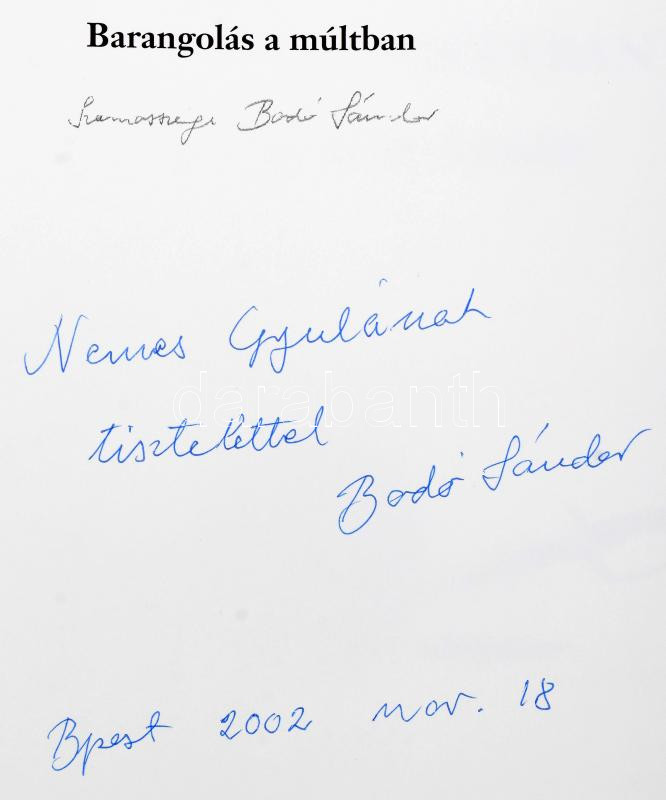 Barangolás a múltban
Szamosszegi Bodó Sándor
Nemes Gyulának
darabanth
tisztelettel
Bodó Sándor
Bpest 2002 nov. 18